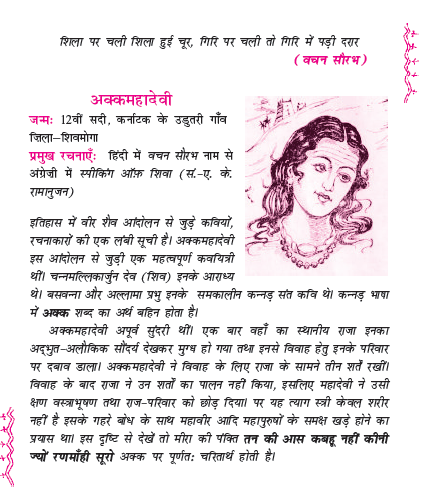 शिला पर चली शिला हुई चूर, गिरि पर चली तो गिरि में पड़ी दरार
( वचन सौरभ )
अक्कमहादेवी
जन्मः 12वीं सदी, कर्नाटक के उडुतरी गाँव
ज़िला–शिवमोगा
प्रमुख रचनाएँः हिंदी में वचन सौरभ नाम से
अंग्रेज़ी में स्पीकिंग ऑफ़ शिवा (सं.-ए. के.
रामानुजन)
इतिहास में वीर शैव आंदोलन से जुड़े कवियों,
रचनाकारों की एक लंबी सूची है। अक्कमहादेवी
इस आंदोलन से जुड़ी एक महत्वपूर्ण कवयित्री
थीं। चन्नमल्लिकार्जुन देव (शिव) इनके आराध्य
थे। बसवन्ना और अल्लामा प्रभु इनके समकालीन कन्नड़ संत कवि थे। कन्नड़ भाषा
में अक्क शब्द का अर्थ बहिन होता है।
अक्कमहादेवी अपूर्व सुंदरी थीं। एक बार वहाँ का स्थानीय राजा इनका
अद्भुत–अलौकिक सौंदर्य देखकर मुग्ध हो गया तथा इनसे विवाह हेतु इनके परिवार
पर दबाव डाला। अक्कमहादेवी ने विवाह के लिए राजा के सामने तीन शर्तें रखीं।
विवाह के बाद राजा ने उन शर्तों का पालन नहीं किया, इसलिए महादेवी ने उसी
क्षण वस्त्राभूषण तथा राज-परिवार को छोड़ दिया। पर यह त्याग स्त्री केवल शरीर
नहीं है इसके गहरे बोध के साथ महावीर आदि महापुरुषों के समक्ष खड़े होने का
प्रयास था। इस दृष्टि से देखें तो मीरा की पंक्ति तन की आस कबहू नहीं कीनी
ज्यों रणमाँही सूरो अक्क पर पूर्णतः चरितार्थ होती है।